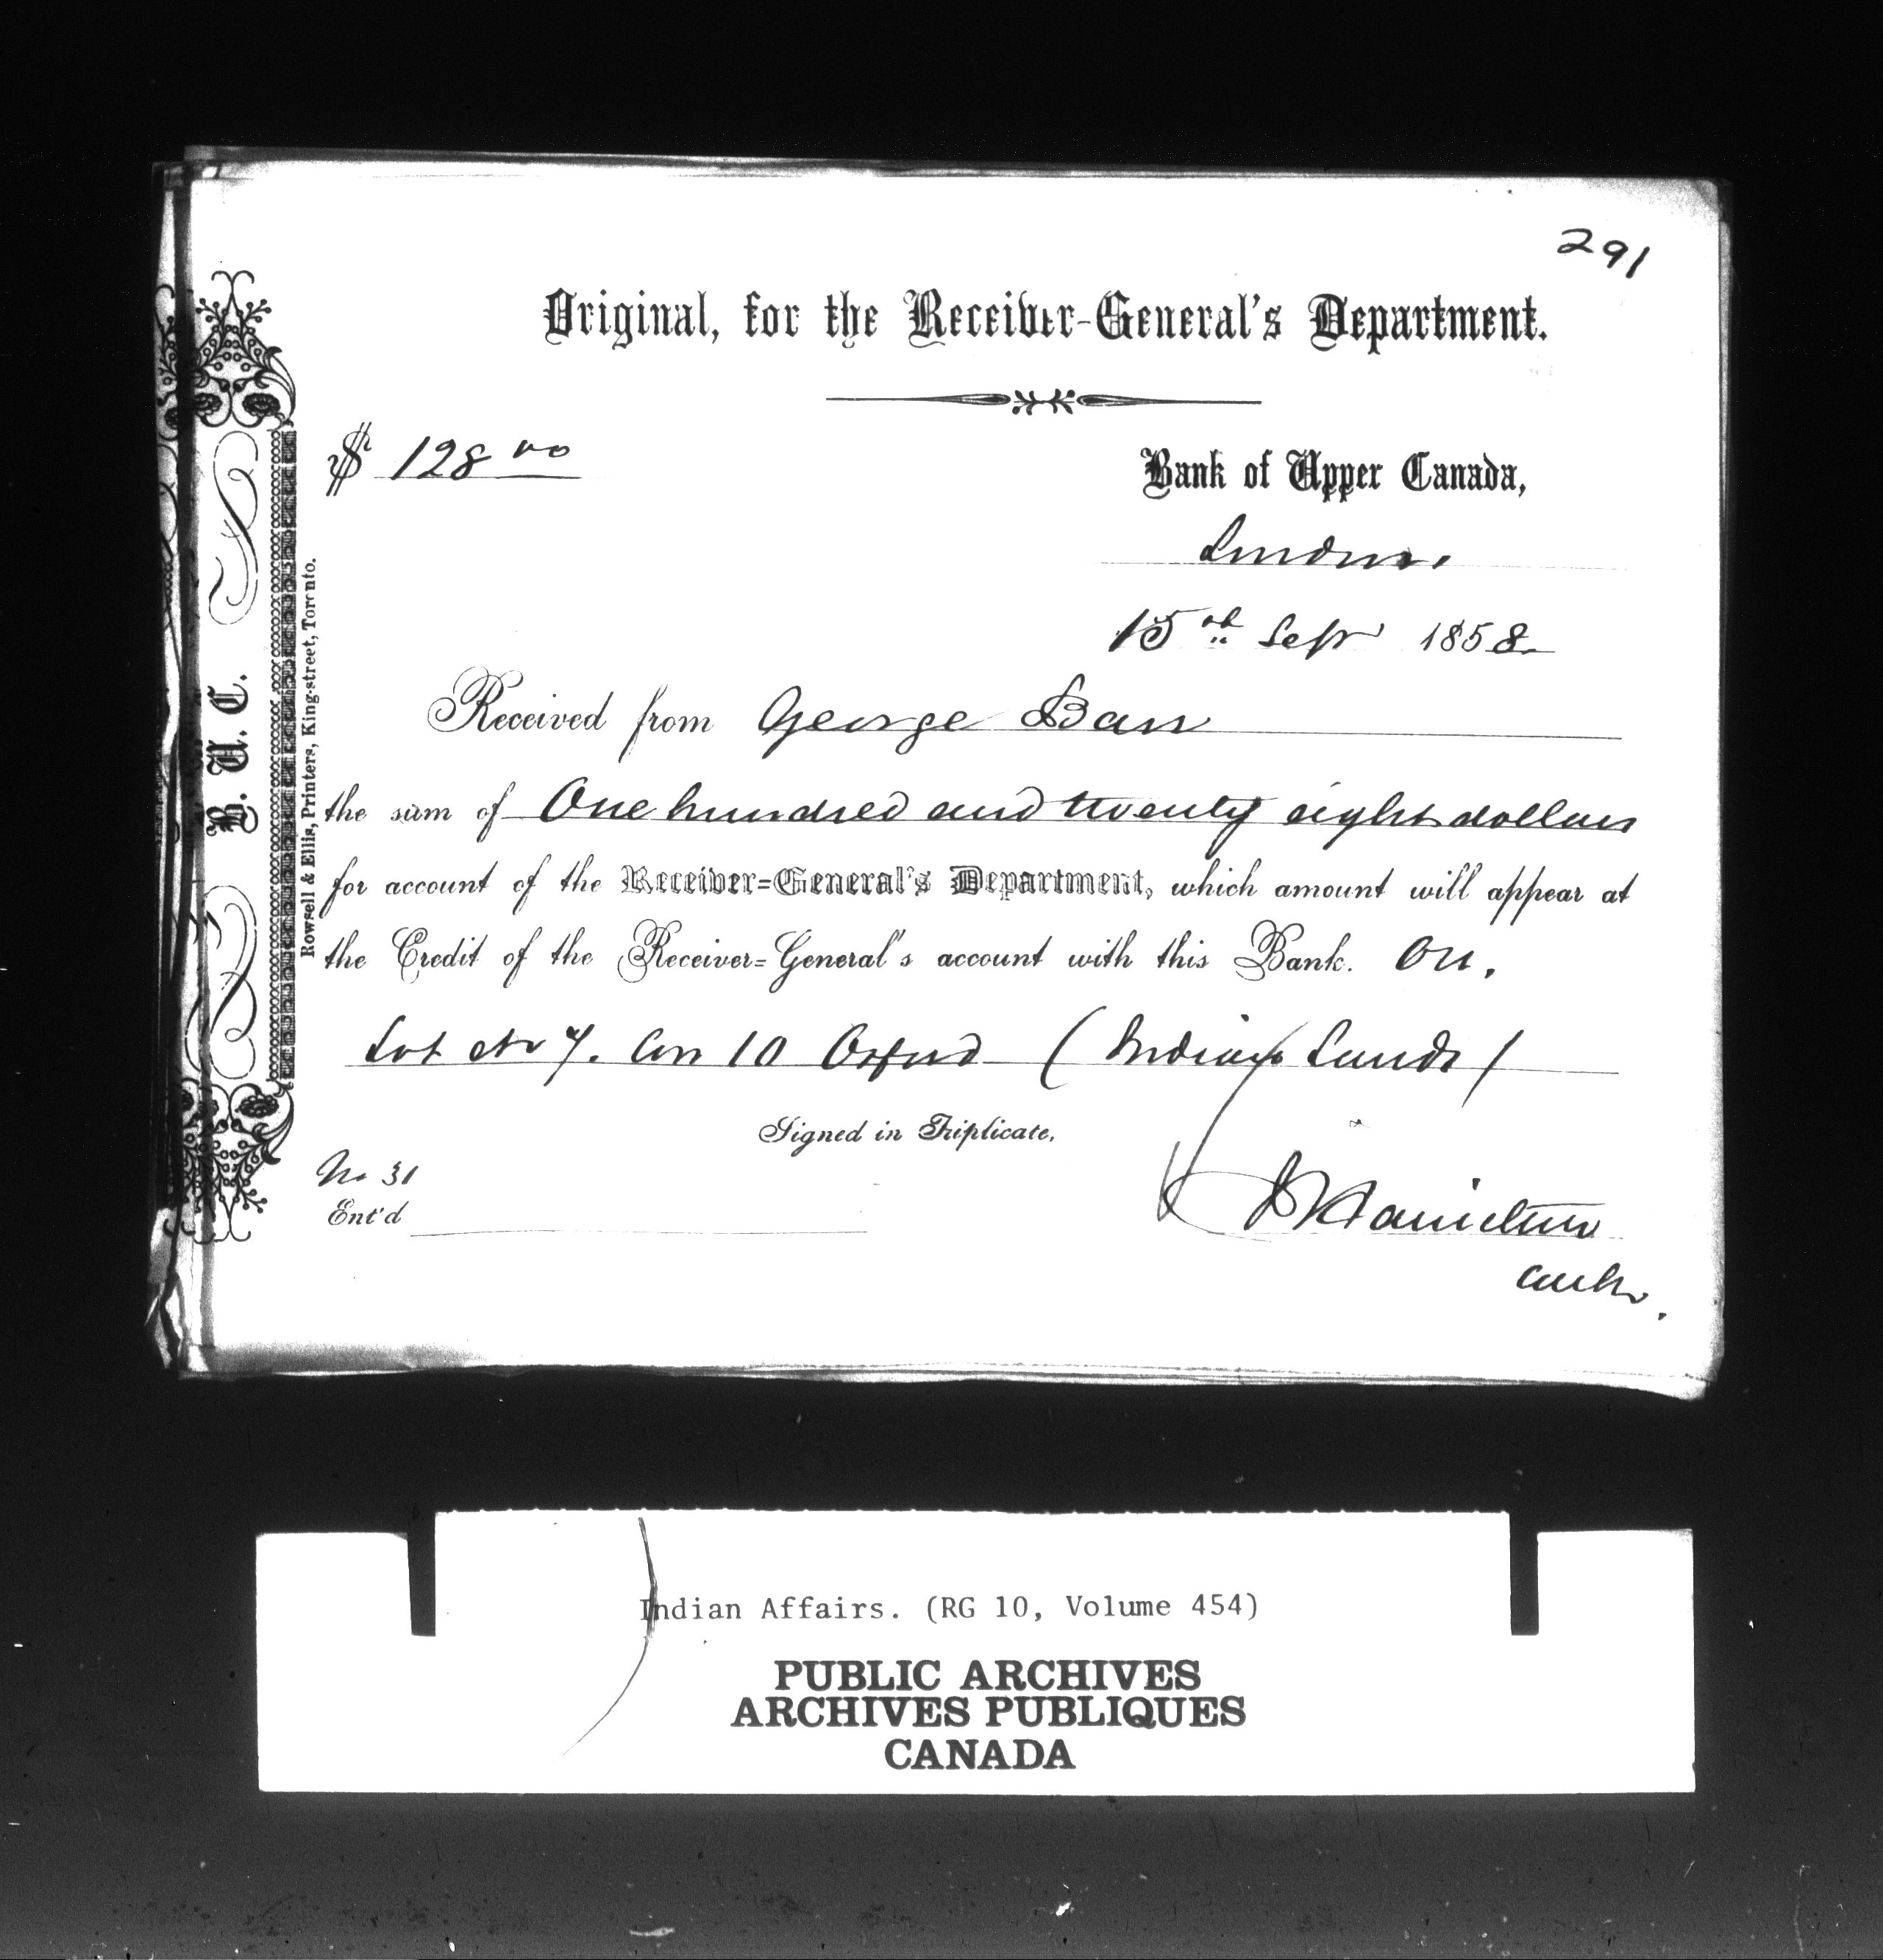 291
Original, for the Receiver-General's Department.
$ 128 00
Bank of Upper Canada,
London.
15th Sepr 1858.
Received from George Barr
the sum of One hundred and twenty eight dollars
for account of the Receiver-General's Department, which amount will appear at
the Credit of the Receiver-General's account with this Bank. On.
Lot No 7. Con 10 Oxford (Indian Lands)
Signed in Triplicate,
No 31
Ent'd
Hamilton
B. U. C.
Rowsell & Ellis, Printers, King-street, Toronto.
Indian Affairs. (RG 10, Volume 454)
PUBLIC ARCHIVES
ARCHIVES PUBLIQUES
CANADA